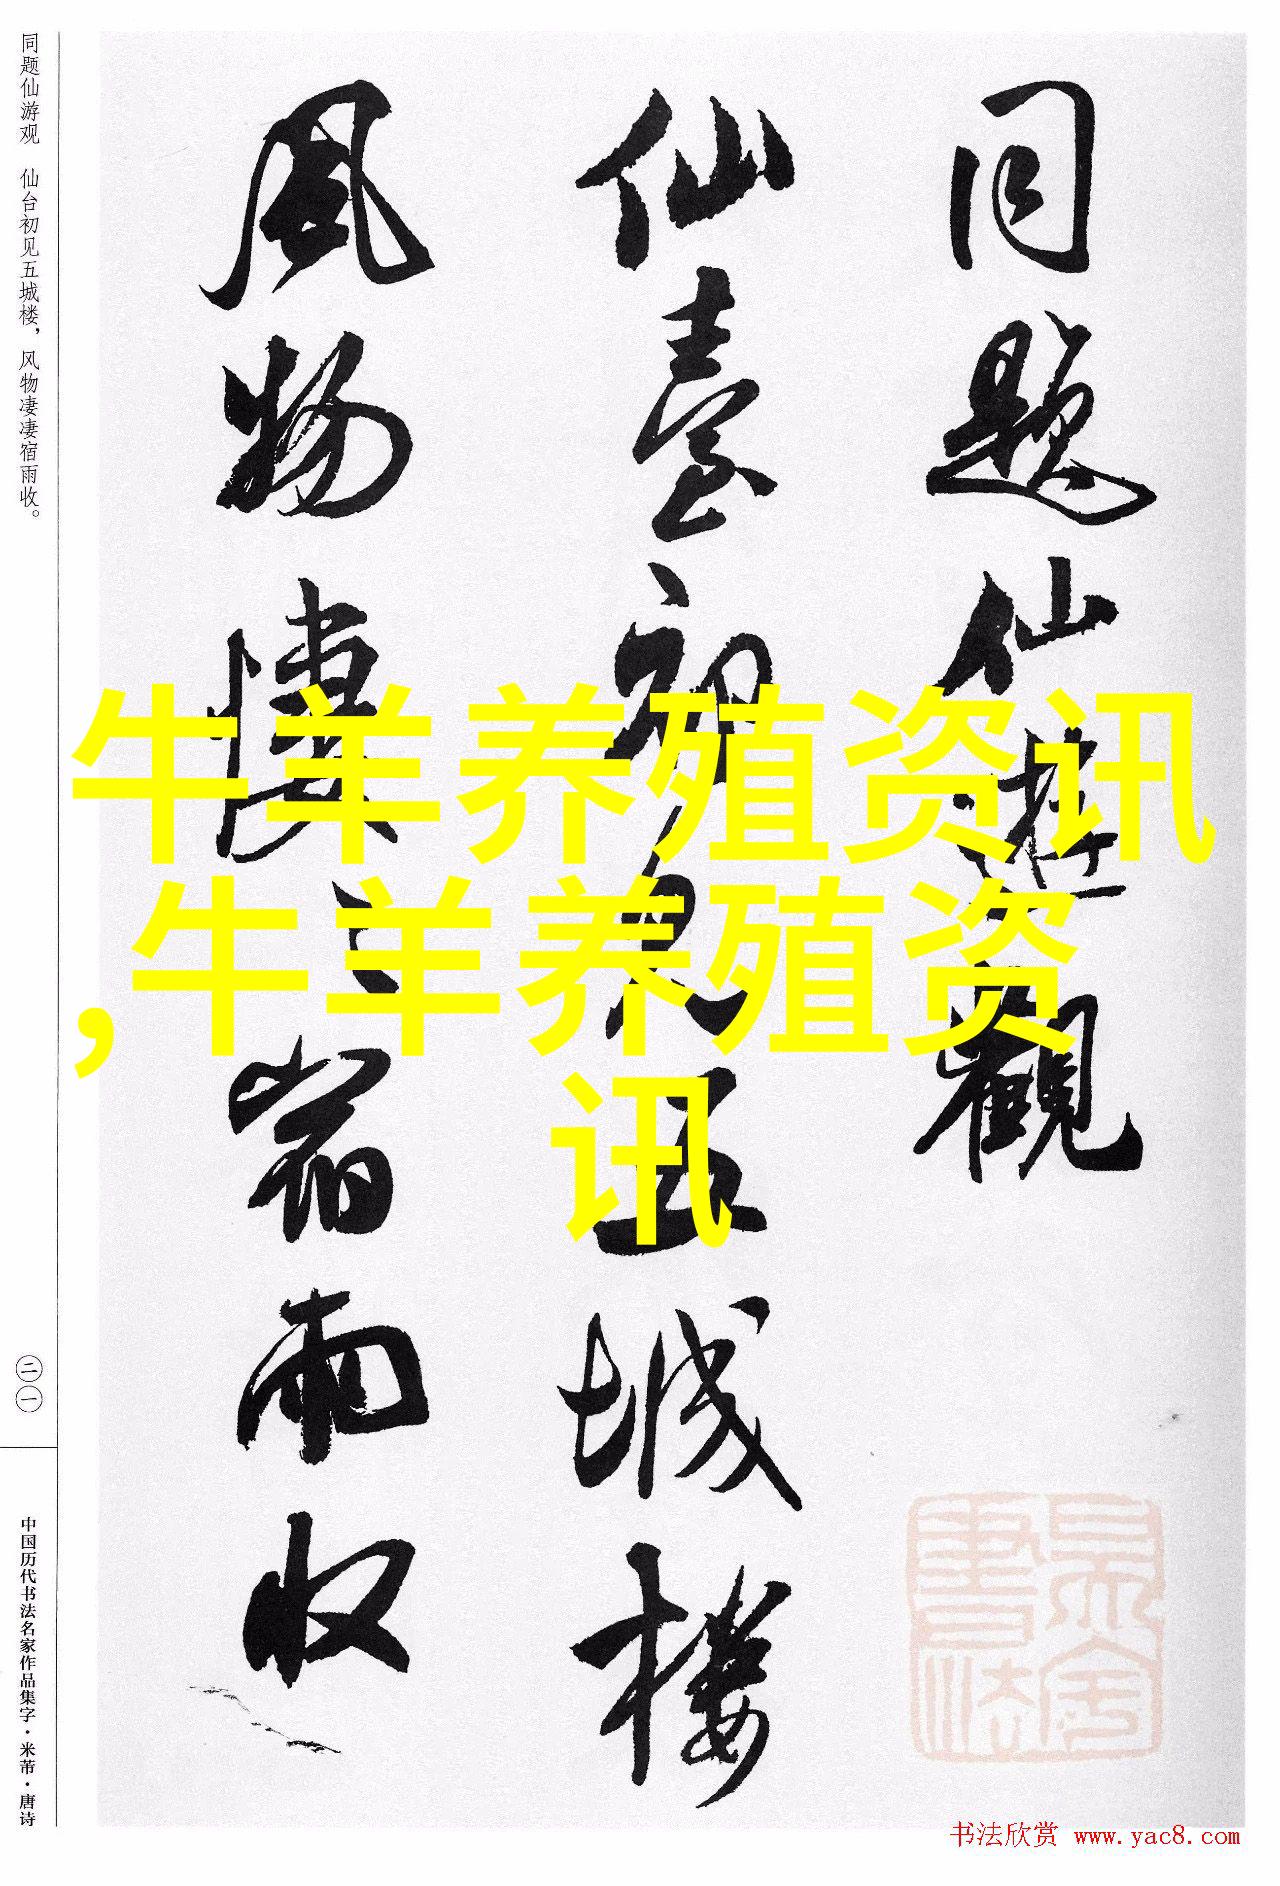 同题仙游观　仙台初见五城楼，风物凄凄宿雨收。
二一
中国历代书法名家作品集字·米芾·唐诗
同題仙遊觀
仙臺初見五城樓
風物悽〻宿雨收
牛羊养殖资讯
,牛羊养殖资
讯
书法欣赏 www.yac8.com